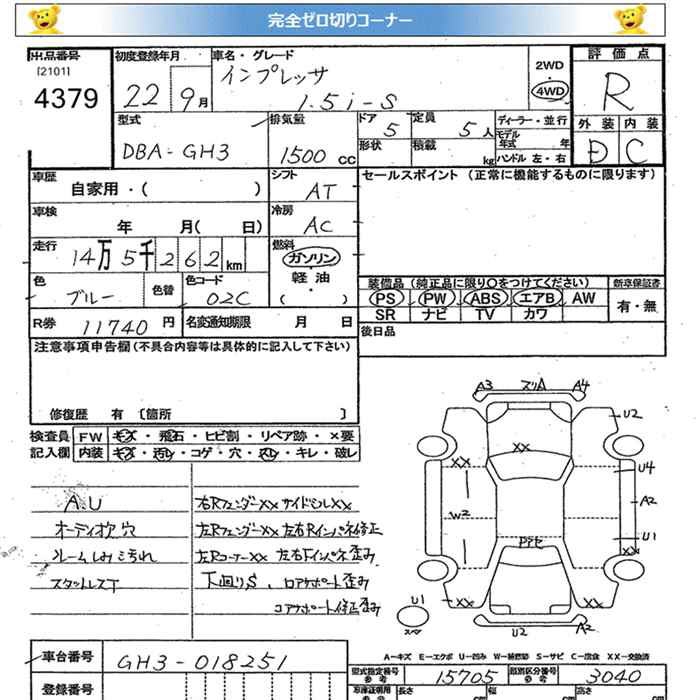 完全ゼロ切りコーナー
出品番号 初度登録年月 車名・グレード 2WD 評価点
[2101] インプレッサ 4WD
4379 22 9月 1.5i-S R
型式 排気量 ドア 定員 ディーラー・並行 外装 内装
5 5人 モデル年式 年
DBA-GH3 1500cc 形状 積載 kg ハンドル 左・右 D C
車歴 シフト セールスポイント (正常に機能するものに限ります)
自家用・( ) AT
車検 冷房
年 月( 日) AC
走行 燃料
14万5千262km ガソリン
軽油
色 色替 色コード ( ) 装備品(純正品に限り○をつけてください) 新車保証書
ブルー 02C PS PW ABS エアB AW 有・無
R券 11740円 名変通知期限 月 日 SR ナビ TV カワ
注意事項申告欄(不具合内容等は具体的に記入して下さい) 後日品
修復歴 有 [箇所 ]
検査員 FW キズ・飛石・ヒビ割・リペア跡・×要
記入欄 内装 キズ・汚レ・コゲ・穴・スレ・キレ・破レ
A.U 右Rフェンダーxx サイドシルxx
オーディオ穴 左Rフェンダーxx 左右Rインパネ修正
ルームしみ汚れ 左Rコーナーxx 左右Fインパネ歪み
スタットレスT 下廻りS、ロアサポート歪み
コアサポート修正歪み
A3 スリA A4
U2
xx
xx
U4
A2
W2
U1
xx
xx xx
U1
U2 A2
A-キズ E-エクボ U-凹み W-補修跡 S-サビ C-腐食 XX-交換済
車台番号 GH3-018251 型式指定番号 参考 15705 類別区分番号 参考 3040
登録番号 長さ cm 幅 cm 高さ cm